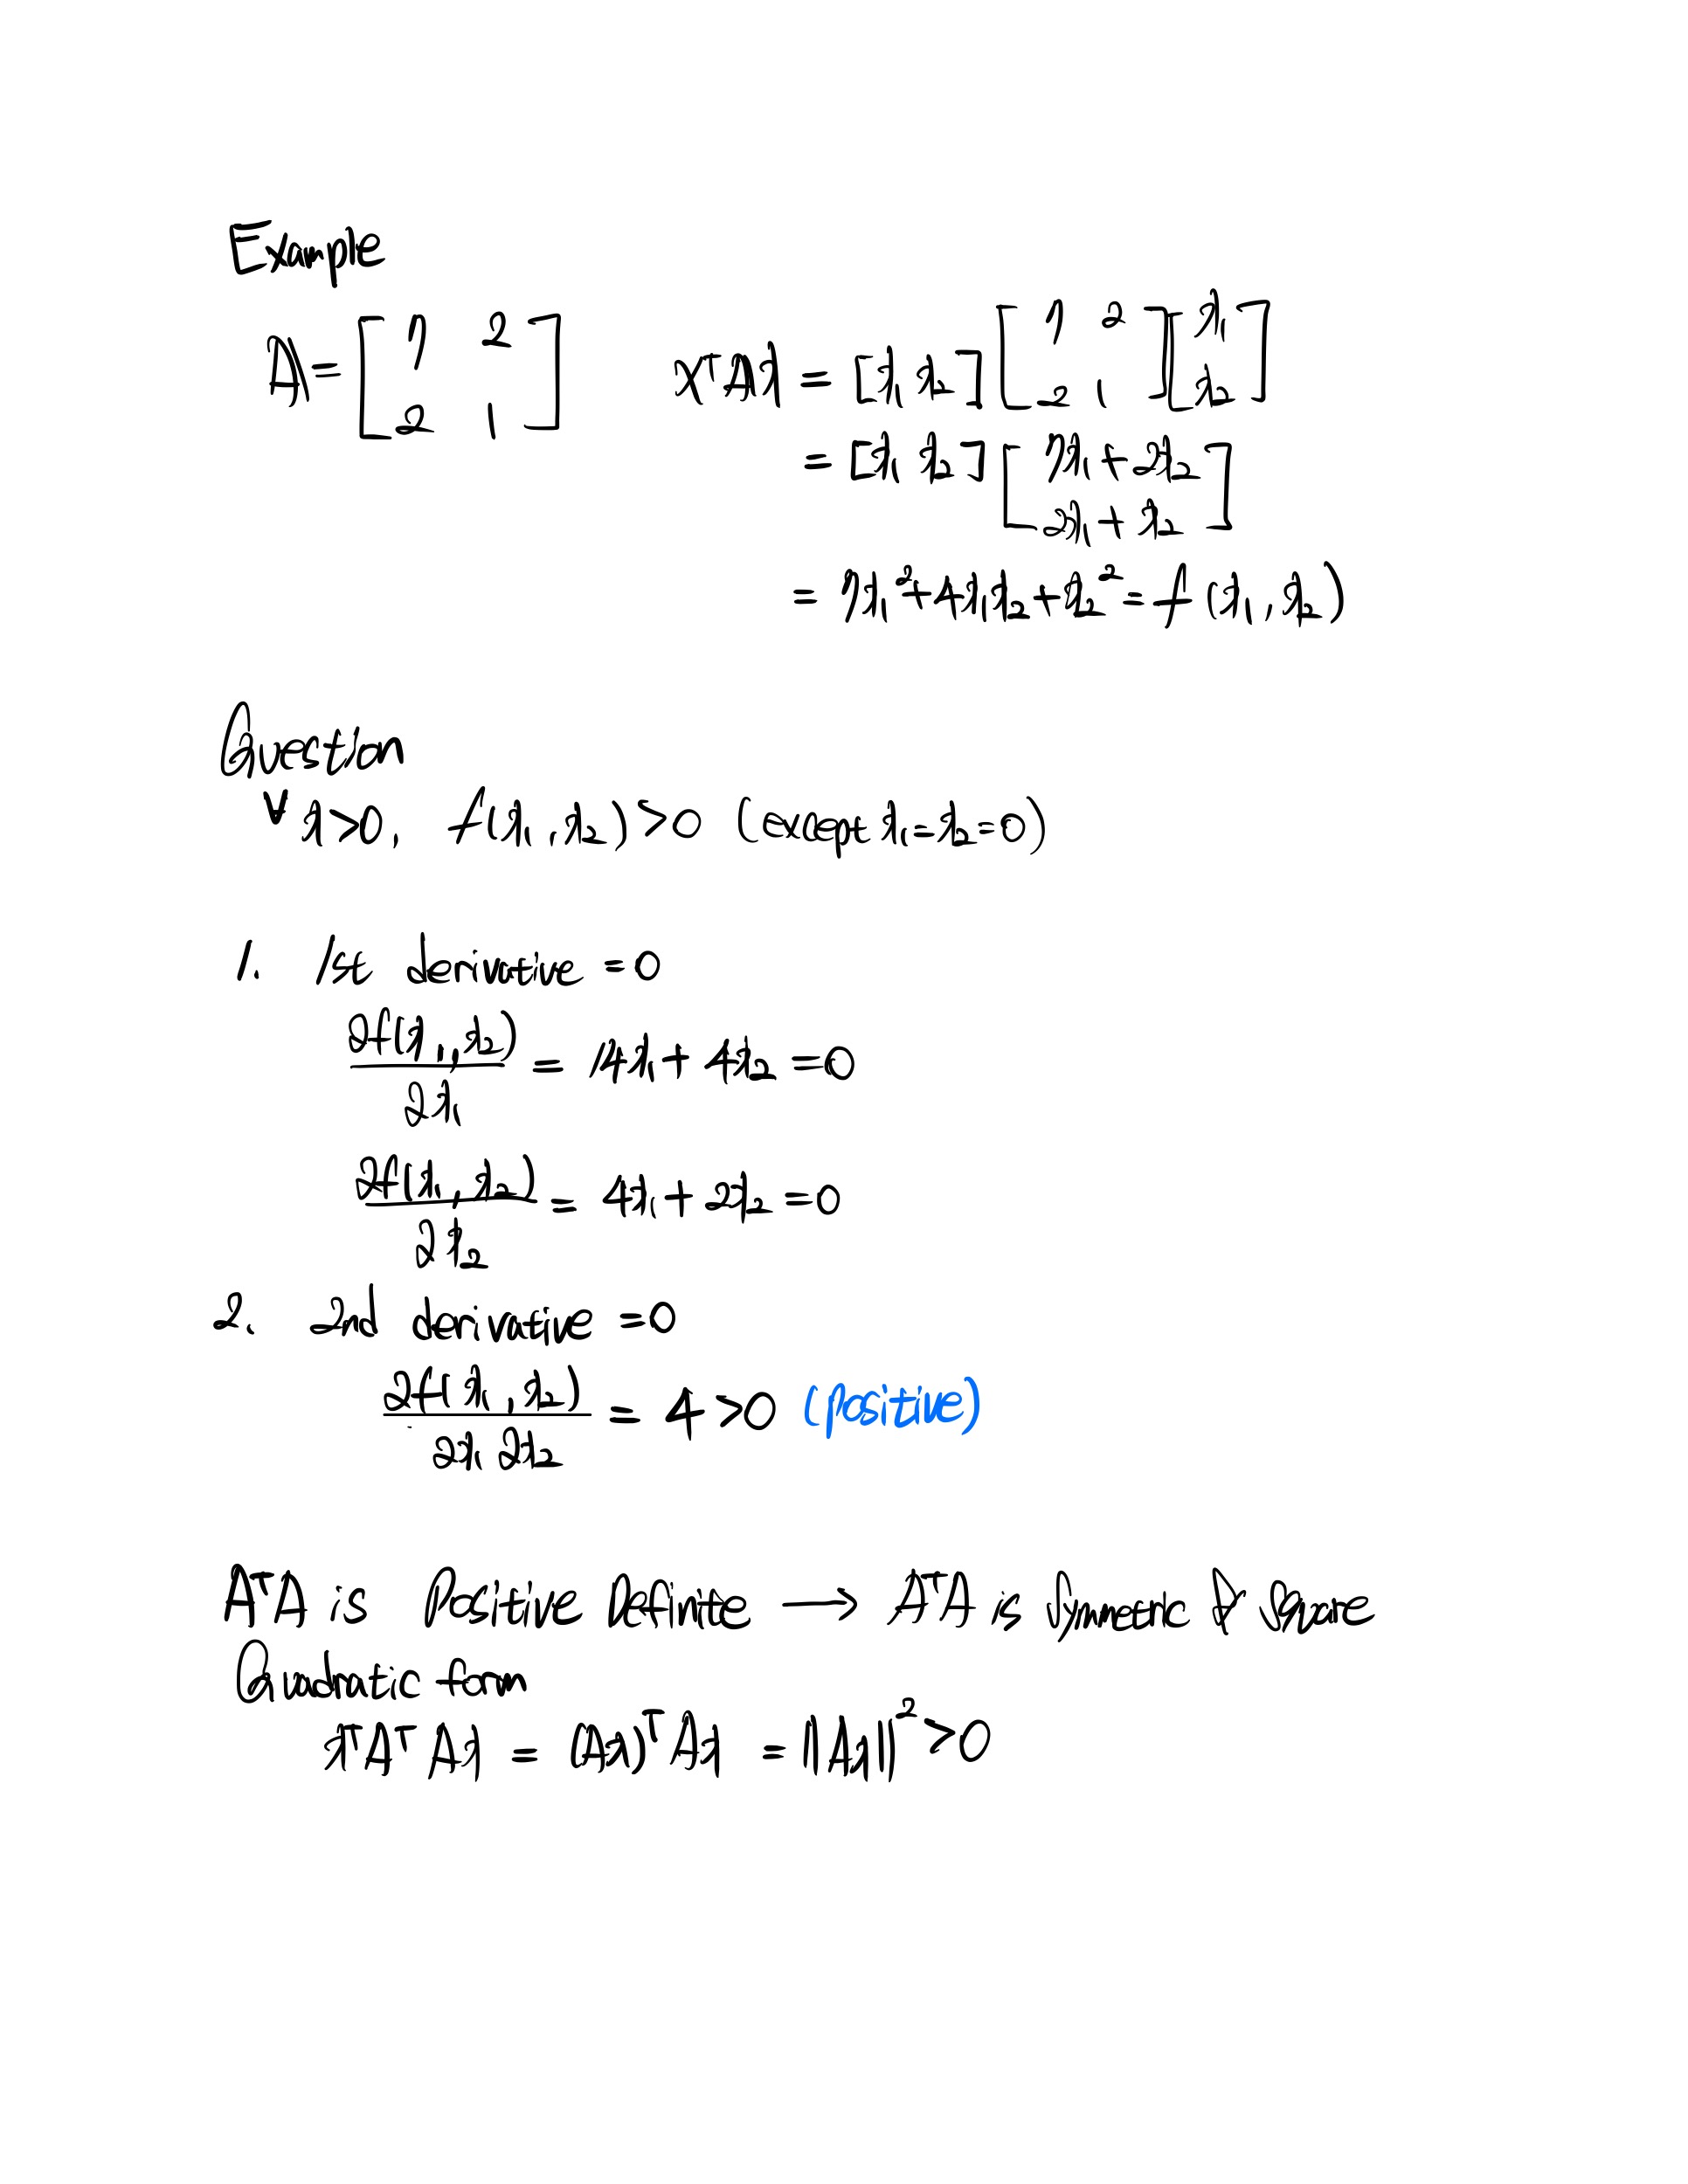 Example
A = [ 7 2 ; 2 1 ]    xᵀAx = [x₁ x₂] [ 7 2 ; 2 1 ] [ x₁ ; x₂ ]
= [x₁ x₂] [ 7x₁+2x₂ ; 2x₁+x₂ ]
= 7x₁²+4x₁x₂+x₂² = f(x₁,x₂)
Question
∀x>0, f(x₁,x₂)>0 (except x₁=x₂=0)
1. 1st derivative =0
∂f(x₁,x₂)/∂x₁ = 14x₁+4x₂=0
∂f(x₁,x₂)/∂x₂ = 4x₁+2x₂=0
2. 2nd derivative =0
∂f(x₁,x₂)/∂x₁∂x₂ = 4>0 (positive)
AᵀA is Positive Definite → AᵀA is Symmetric & Square
Quadratic form
xᵀAᵀAx = (Ax)ᵀAx = ||Ax||²>0